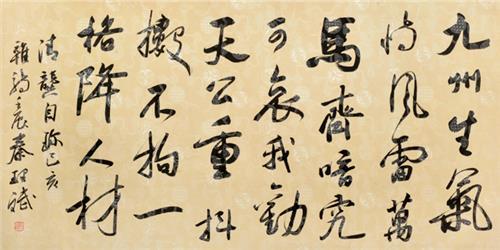 九州生氣
恃风雷萬
馬齊喑究
可哀我勸
天公重抖
擻不拘一
格降人材
清龔自珍己亥
雜詩壬辰秦理斌